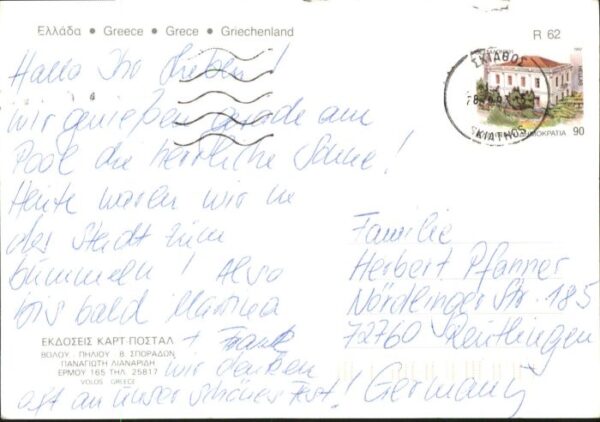 Ελλάδα • Greece • Grece • Griechenland
R 62
Hallo Ihr Lieben!
wir genießen gerade am
Pool die herrliche Sonne!
Heute waren wir in
der Stadt zum
bummeln! Also
bis bald Martina
+ Frank
wir denken
oft an unser schönes Fest!
ΣΚΙΑΘΟΣ
SKIATHOS
ΔΗΜΟΚΡΑΤΙΑ
90
Familie
Herbert Pfanner
Nördlinger Str. 185
72760 Reutlingen
Germany
ΕΚΔΟΣΕΙΣ ΚΑΡΤ-ΠΟΣΤΑΛ
ΒΟΛΟΥ - ΠΗΛΙΟΥ - Β. ΣΠΟΡΑΔΩΝ
ΠΑΝΑΓΙΩΤΗ ΛΙΑΝΑΡΙΔΗ
ΕΡΜΟΥ 165 ΤΗΛ. 25817
VOLOS GREECE